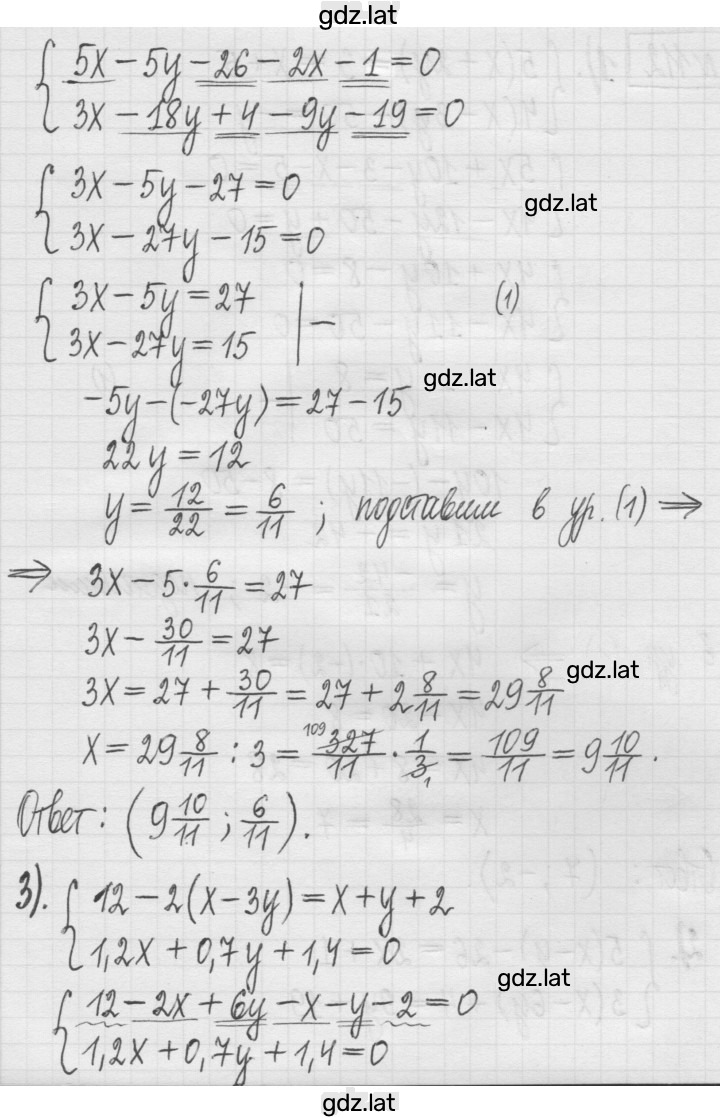 gdz.lat
5x − 5y − 26 − 2x − 1 = 0
3x − 18y + 4 − 9y − 19 = 0
3x − 5y − 27 = 0
gdz.lat
3x − 27y − 15 = 0
3x − 5y = 27 | − (1)
3x − 27y = 15
gdz.lat
−5y − (−27y) = 27 − 15
22y = 12
y = 12/22 = 6/11 ; подставим в ур. (1) ⇒
⇒ 3x − 5 · 6/11 = 27
3x − 30/11 = 27
gdz.lat
3x = 27 + 30/11 = 27 + 2 8/11 = 29 8/11
x = 29 8/11 : 3 = 109 327/11 · 1/3 1 = 109/11 = 9 10/11 .
Ответ: (9 10/11 ; 6/11).
3). 12 − 2(x − 3y) = x + y + 2
1,2x + 0,7y + 1,4 = 0
gdz.lat
12 − 2x + 6y − x − y − 2 = 0
1,2x + 0,7y + 1,4 = 0
gdz.lat